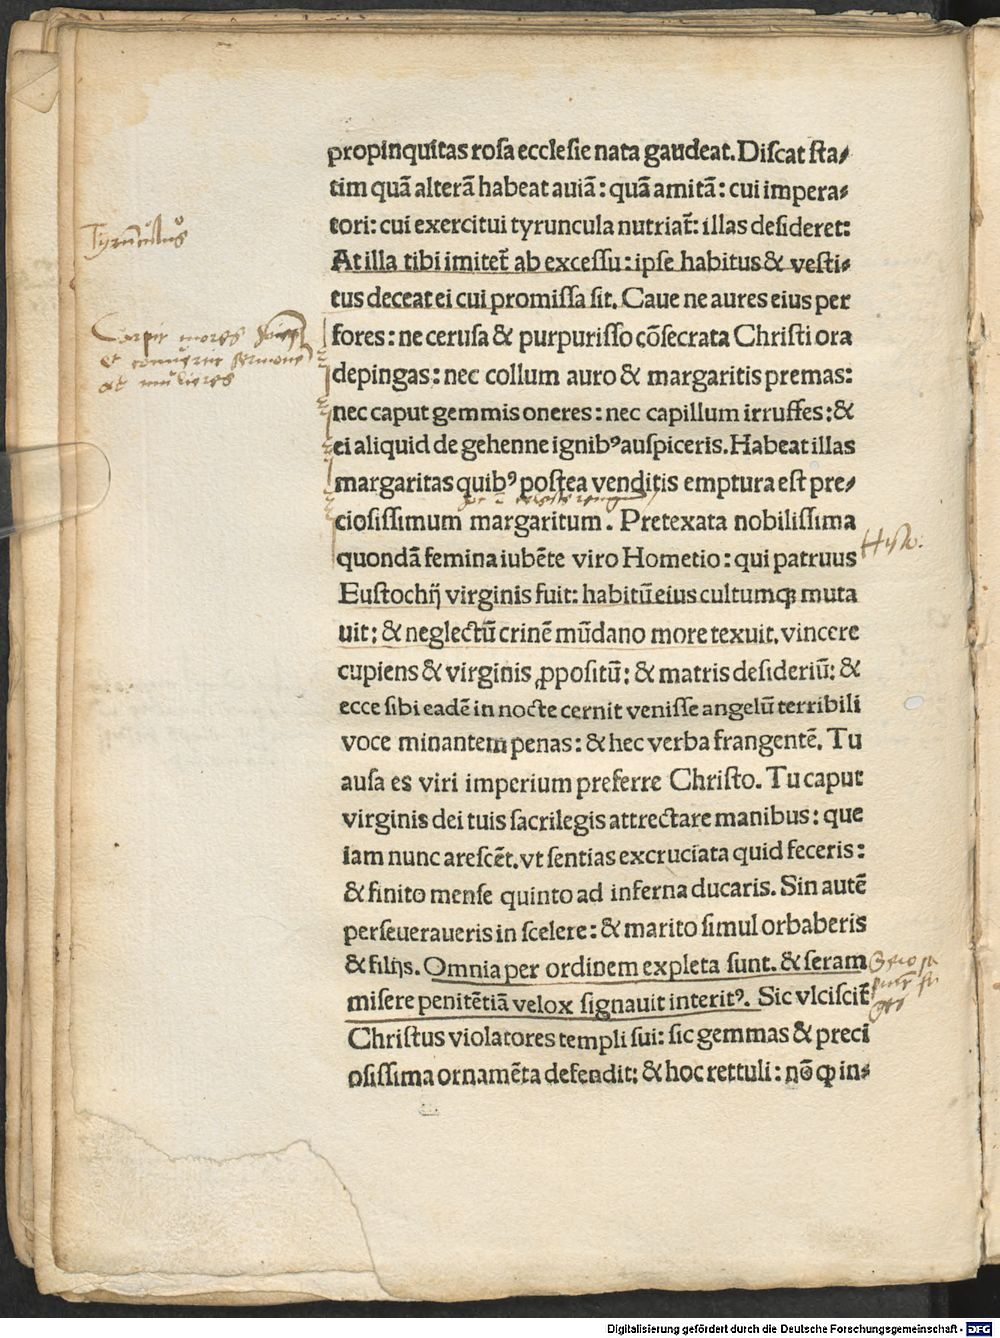 propinquitas rosa ecclesie nata gaudeat. Discat sta-
tim quā alterā habeat auiā: quā amitā: cui impera-
tori: cui exercitui tyruncula nutriat̄: illas desideret:
At illa tibi imitet̄ ab excessu: ipse habitus & vesti-
tus deceat ei cui promissa sit. Caue ne aures eius per
fores: ne cerusa & purpurisso cōsecrata Christi ora
depingas: nec collum auro & margaritis premas:
nec caput gemmis oneres: nec capillum irruffes: &
ei aliquid de gehenne ignibꝰ auspiceris. Habeat illas
margaritas quibꝰ postea venditis emptura est pre-
ciosissimum margaritum. Pretexata nobilissima
quondā femina iubēte viro Hometio: qui patruus
Eustochij virginis fuit: habitū eius cultumqꝫ muta
uit: & neglectū crinē mūdano more texuit. vincere
cupiens & virginis ꝓpositū: & matris desideriū: &
ecce sibi eadē in nocte cernit venisse angelū terribili
voce minantem penas: & hec verba frangentē. Tu
ausa es viri imperium preferre Christo. Tu caput
virginis dei tuis sacrilegis attrectare manibus: que
iam nunc arescēt. vt sentias excruciata quid feceris:
& finito mense quinto ad inferna ducaris. Sin autē
perseueraueris in scelere: & marito simul orbaberis
& filijs. Omnia per ordinem expleta sunt. & seram
misere penitētiā velox signauit interitꝰ. Sic vlciscit̄
Christus violatores templi sui: sic gemmas & preci
osissima ornamēta defendit: & hoc rettuli: nō ꝙ in-
Tyrūculus
mores
et sermone
mulieres
Histo:
Digitalisierung gefördert durch die Deutsche Forschungsgemeinschaft - DFG